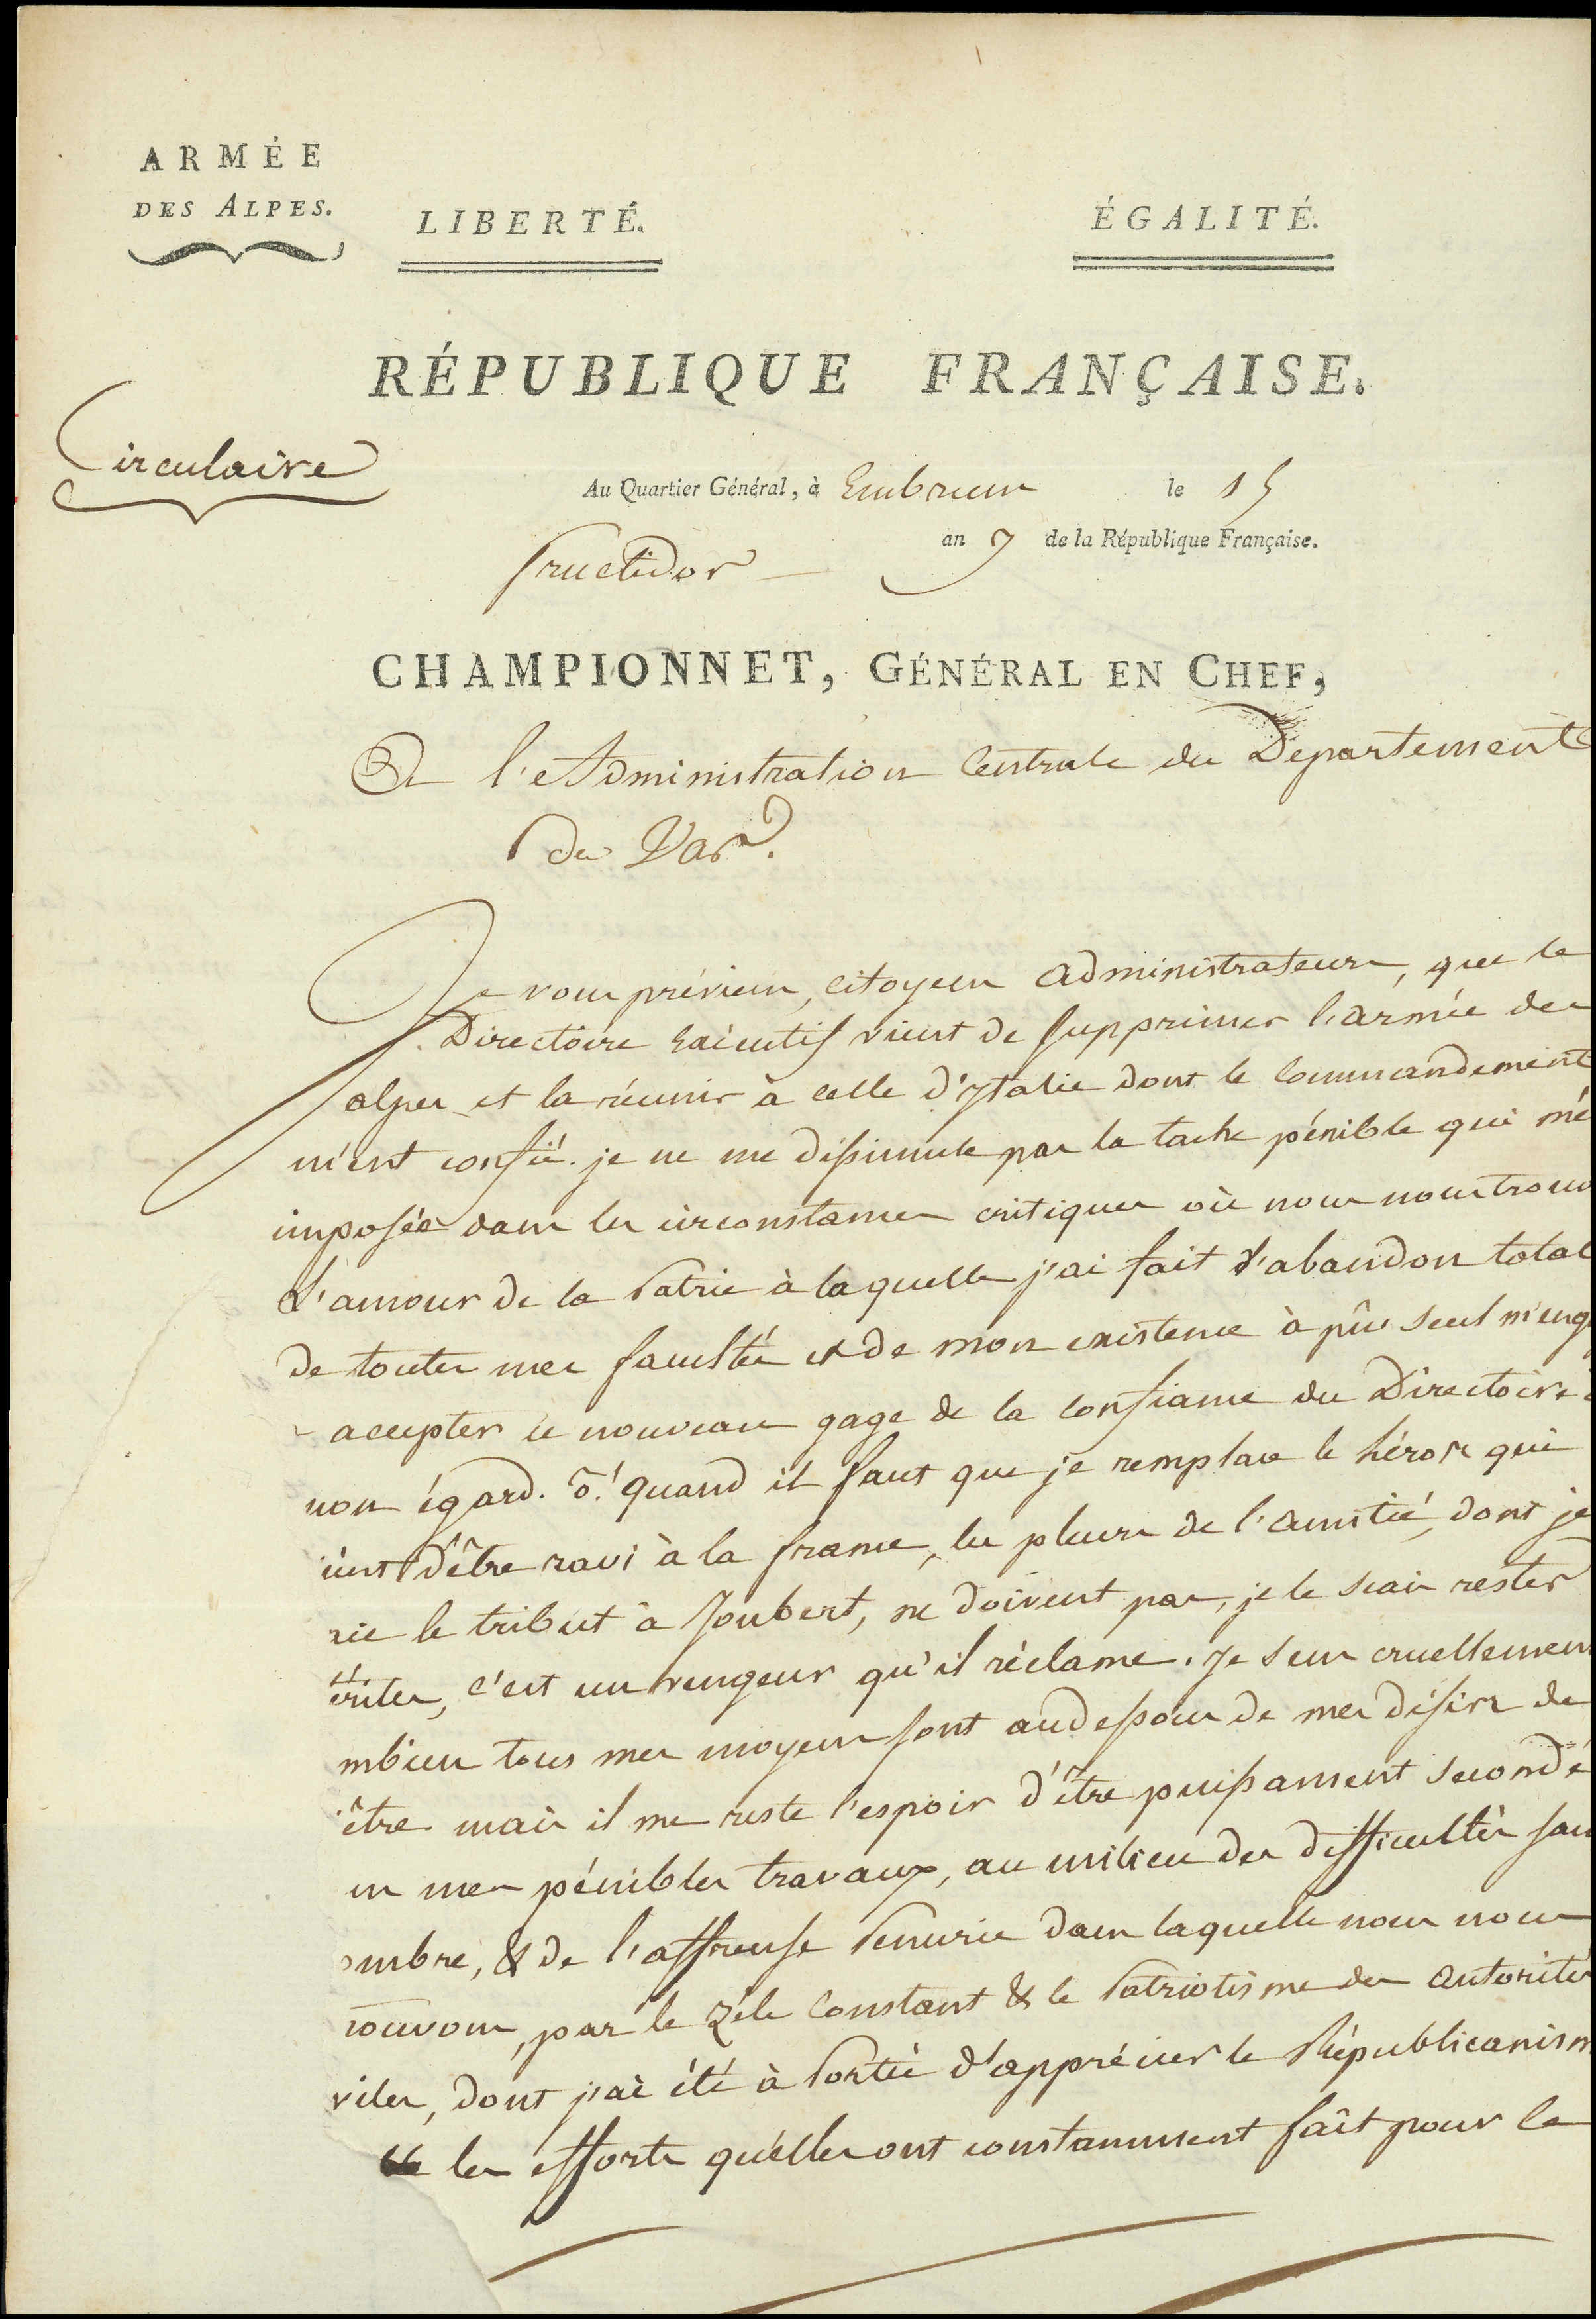 ARMÉE
DES ALPES.
LIBERTÉ. ÉGALITÉ.
RÉPUBLIQUE FRANÇAISE.
Circulaire
Au Quartier Général, à Embrun le 15
fructidor an 7 de la République Française.
CHAMPIONNET, GÉNÉRAL EN CHEF,
A l'Administration Centrale du Departement
du Var.
Je vous préviens, citoyens administrateurs, que le
Directoire Exécutif vient de supprimer l'armée des
alpes et la réunir à celle d'ytalie dont le commandement
m'est confié. je ne me dissimule pas la tache pénible qui m'é
imposée dans les circonstances critiques où nous nous trouv
L'amour de la Patrie à laquelle j'ai fait l'abandon total
de toutes mes facultés et de mon existence à pû seul m'eng
accepter ce nouveau gage de la confiance du Directoire à
mon égard. ô! quand il faut que je remplace le héros qui
ient d'être ravi à la france, les pleurs de l'amitié, dont je
aie le tribut à Joubert, ne doivent pas, je le scais rester
ériles, c'est un vengeur qu'il réclame. Je sens cruellemen
mbien tous mes moyens sont audessous de mes désirs de
'être mais il me reste l'espoir d'être puissament secondé
ns mes pénibles travaux, au milieu des difficultés san
ombre, & de l'affreuse Penurie dans laquelle nous nous
rouvons, par le Zéle Constant & le Patriotisme des autorités
viles, dont j'ai été à Portée d'apprécier le Républicanism
les efforts qu'elles ont constamment fait pour la